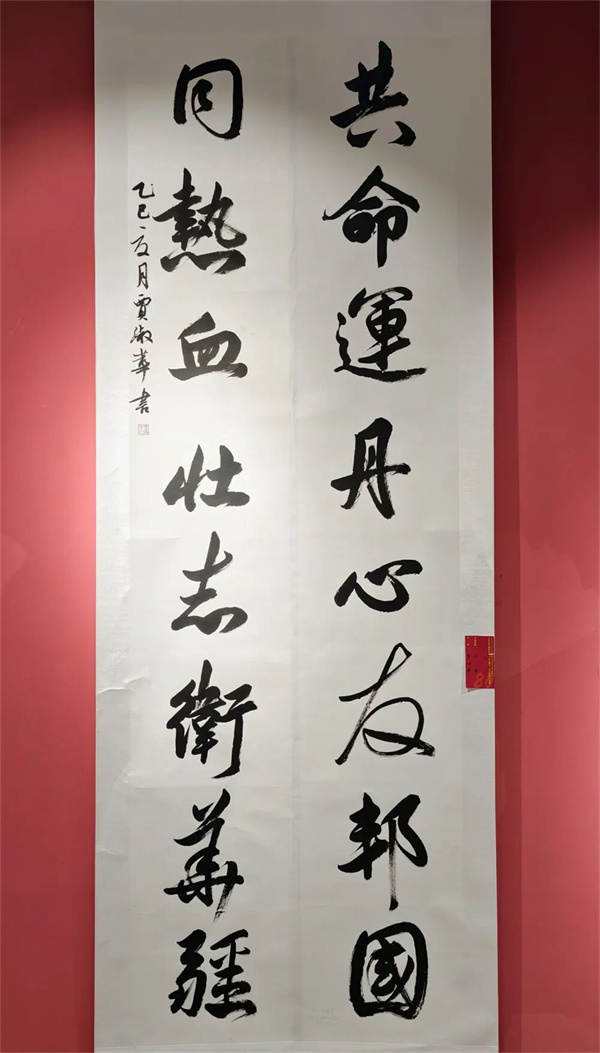 共命運丹心友邦國
同熱血壯志衛華疆
乙巳夏月賈淑華書